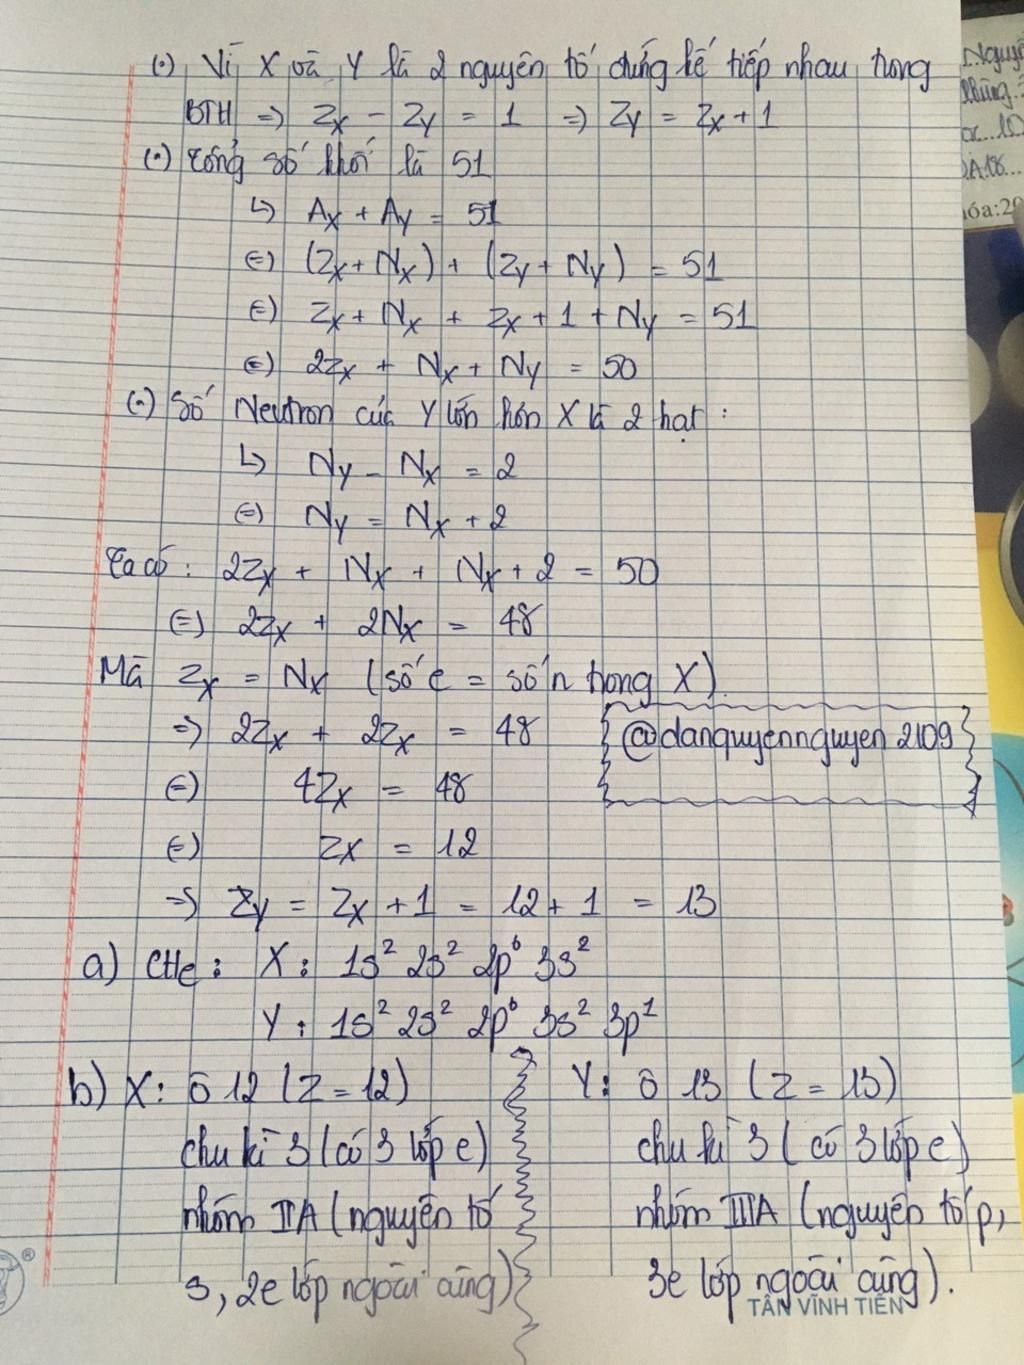 (.) Vì X và Y là 2 nguyên tố đứng kế tiếp nhau trong
BTH => Zx - Zy = 1 => Zy = Zx + 1
(.) Tổng số khối là 51
↳ Ax + Ay = 51
(=) (Zx + Nx) + (Zy + Ny) = 51
(=) Zx + Nx + Zx + 1 + Ny = 51
(=) 2Zx + Nx + Ny = 50
(.) Số Neutron của Y lớn hơn X là 2 hạt :
↳ Ny - Nx = 2
(=) Ny = Nx + 2
Ta có : 2Zx + Nx + Nx + 2 = 50
(=) 2Zx + 2Nx = 48
Mà Zx = Nx (số e = số n trong X).
=> 2Zx + 2Zx = 48
@danquyennguyen 2109
(=) 4Zx = 48
(=) Zx = 12
=> Zy = Zx + 1 = 12 + 1 = 13
a) CHe : X : 1s² 2s² 2p⁶ 3s²
Y : 1s² 2s² 2p⁶ 3s² 3p¹
b) X : ô 12 (Z = 12)
chu kì 3 (có 3 lớp e)
nhóm IIA (nguyên tố
s, 2e lớp ngoài cùng)
Y : ô 13 (Z = 13)
chu kì 3 (có 3 lớp e)
nhóm IIIA (nguyên tố p,
3e lớp ngoài cùng).
TÂN VĨNH TIẾN
®
óa:20